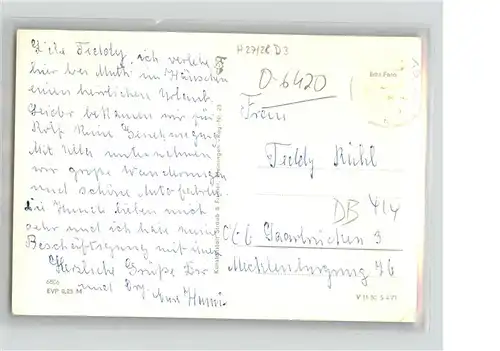 Liebe Teddy, ich verlebe
hier bei Mutti im Häuschen
einen herrlichen Urlaub.
Leider bekamen wir für
Rolf keine Genehmigung.
Mit Ulla unternehmen
wir große Wanderungen
und schöne Autofahrten.
Die Hunde lieben mich
sehr und ich habe meine
Beschäftigung mit ihnen
Herzliche Grüße Dir
und
6806
EVP 0,25 M
H 2712R D 3
D-6420
Frau
Teddy Rühl
DB 414
Saarbrücken 3
Mecklenburgring 46